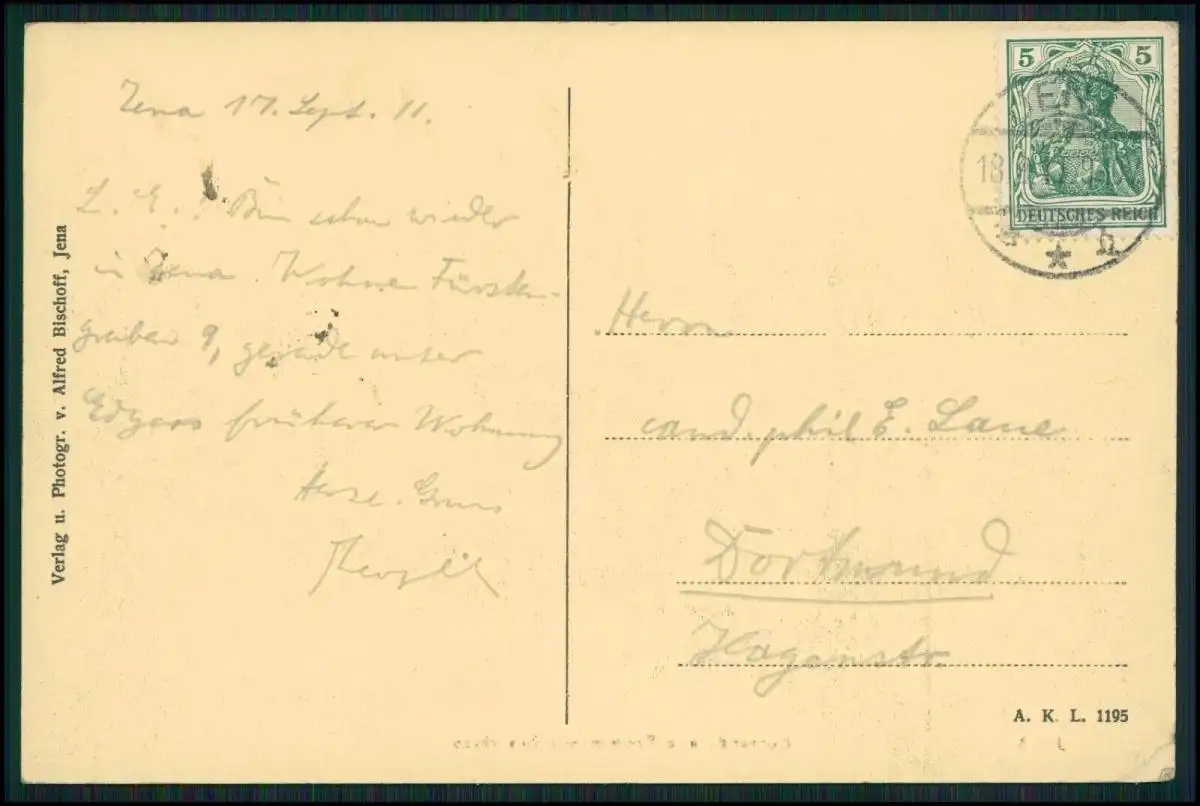 Jena 17. Sept. 11.
L. E.! Bin schon wieder
in Jena. Wohne Fürsten-
graben 9, gerade unter
Edgars früherer Wohnung
Herzl. Gruss
Verlag u. Photogr. v. Alfred Bischoff, Jena
5 5
DEUTSCHES REICH
JENA
18
b
Herrn
cand. phil E. Lane
Dortmund
Hagenstr.
A. K. L. 1195